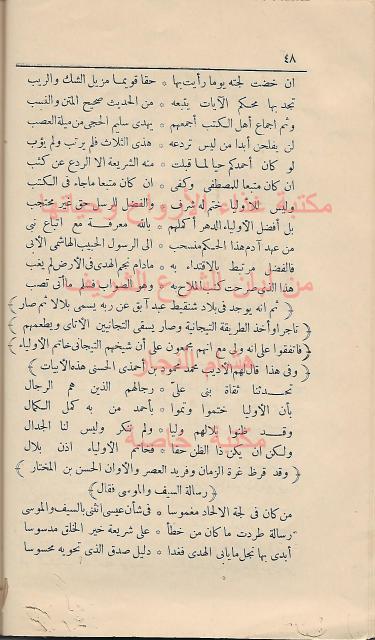 ٤٨
ان خضت لجته يوما رأيت بها * حقا قويما مزيل الشك والريب
تجد بها محكم الآيات يتبعه * من الحديث صحيح المتن والنسب
وثم اجماع أهل الكتب أجمعهم * يهدى سليم الحجى من ميلة العصب
لن يفلحن أبدا من ليس تردعه * هذى الثلاث فلم يرتب ولم يؤب
لو كان أحمدكم حيا لما قبلت * منه الشريعة الا الردع عن كثب
ان كان متبعا للمصطفى وكفى * ان كان متبعا ماجاء فى الكتب
وليس للأوليا ختم له شرف * والفضل للرسل حق غير محتجب
بل أفضل الأولياء الدهر أكملهم * بالله معرفة مع اتباع نبى
من عهد آدم هذا الحكم منسحب * الى الرسول الحبيب الهاشمى الأبى
فالفضل مرتبط بالاقتداء به * مادام نجم الهدى فى الأرض لم يغب
هذا الذى صرحت كتب الملاح به * وهو الصواب فسلم ما أتى تصب
﴿ ثم انه يوجد فى بلاد شنقيط عبد آبق عن ربه يسمى بلالا ثم صار ﴾
﴿ تاجرا وأخذ الطريقة التيجانية وصار يسقى التيجانيين الاتاى ويطعمهم ﴾
﴿ فاتفقوا على انه ولى مع انهم مجمعون على أن شيخهم التيجانى خاتم الاولياء ﴾
﴿ وفى هذا قال لهم الاديب محمد محمود بن أحمذى الحسنى هذه الأبيات ﴾
تحدثنا ثقاة بنى علىّ * رجالهم الذين هم الرجال
بأن الأوليا ختموا وتموا * بأحمد من به كمل الكمال
وقد ظنوا بلالهم وليا * ولم ننكر وليس لنا الجدال
ولكن ان يكن ذا الظن حقا * فخاتم الاولياء اذن بلال
﴿ وقد قرظ غرة الزمان وفريد العصر والأوان الحسن بن المختار ﴾
﴿ رسالة السيف والموسى فقال ﴾
من كان فى لجة الالحاد مغموسا * فى شأن عيسى انثنى بالسيف والموسى
رسالة طردت ما كان من خطأ * على شريعة خير الخلق مدسوسا
أبدى بها نجل مايابى الهدى فغدا * دليل صدق الذى تحويه محسوسا
مكتبة غذاء الأرواح وحياتها
هشام النجار
مكتبة خاصة